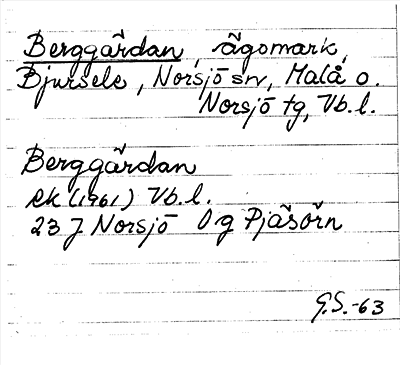 Berggårdan, ägomark,
Bjursele, Norsjö sn, Malå o.
Norsjö tg, Vb.l.
Berggårdan
ek (1961) Vb.l.
23 J Norsjö 0 g Pjäsörn
G.S.-63